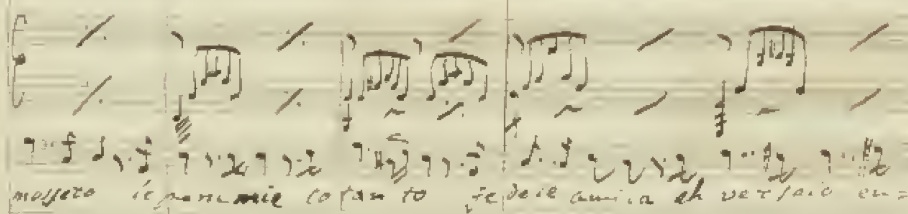 mossero le pene mie cotanto fedele amica eh versaio en=